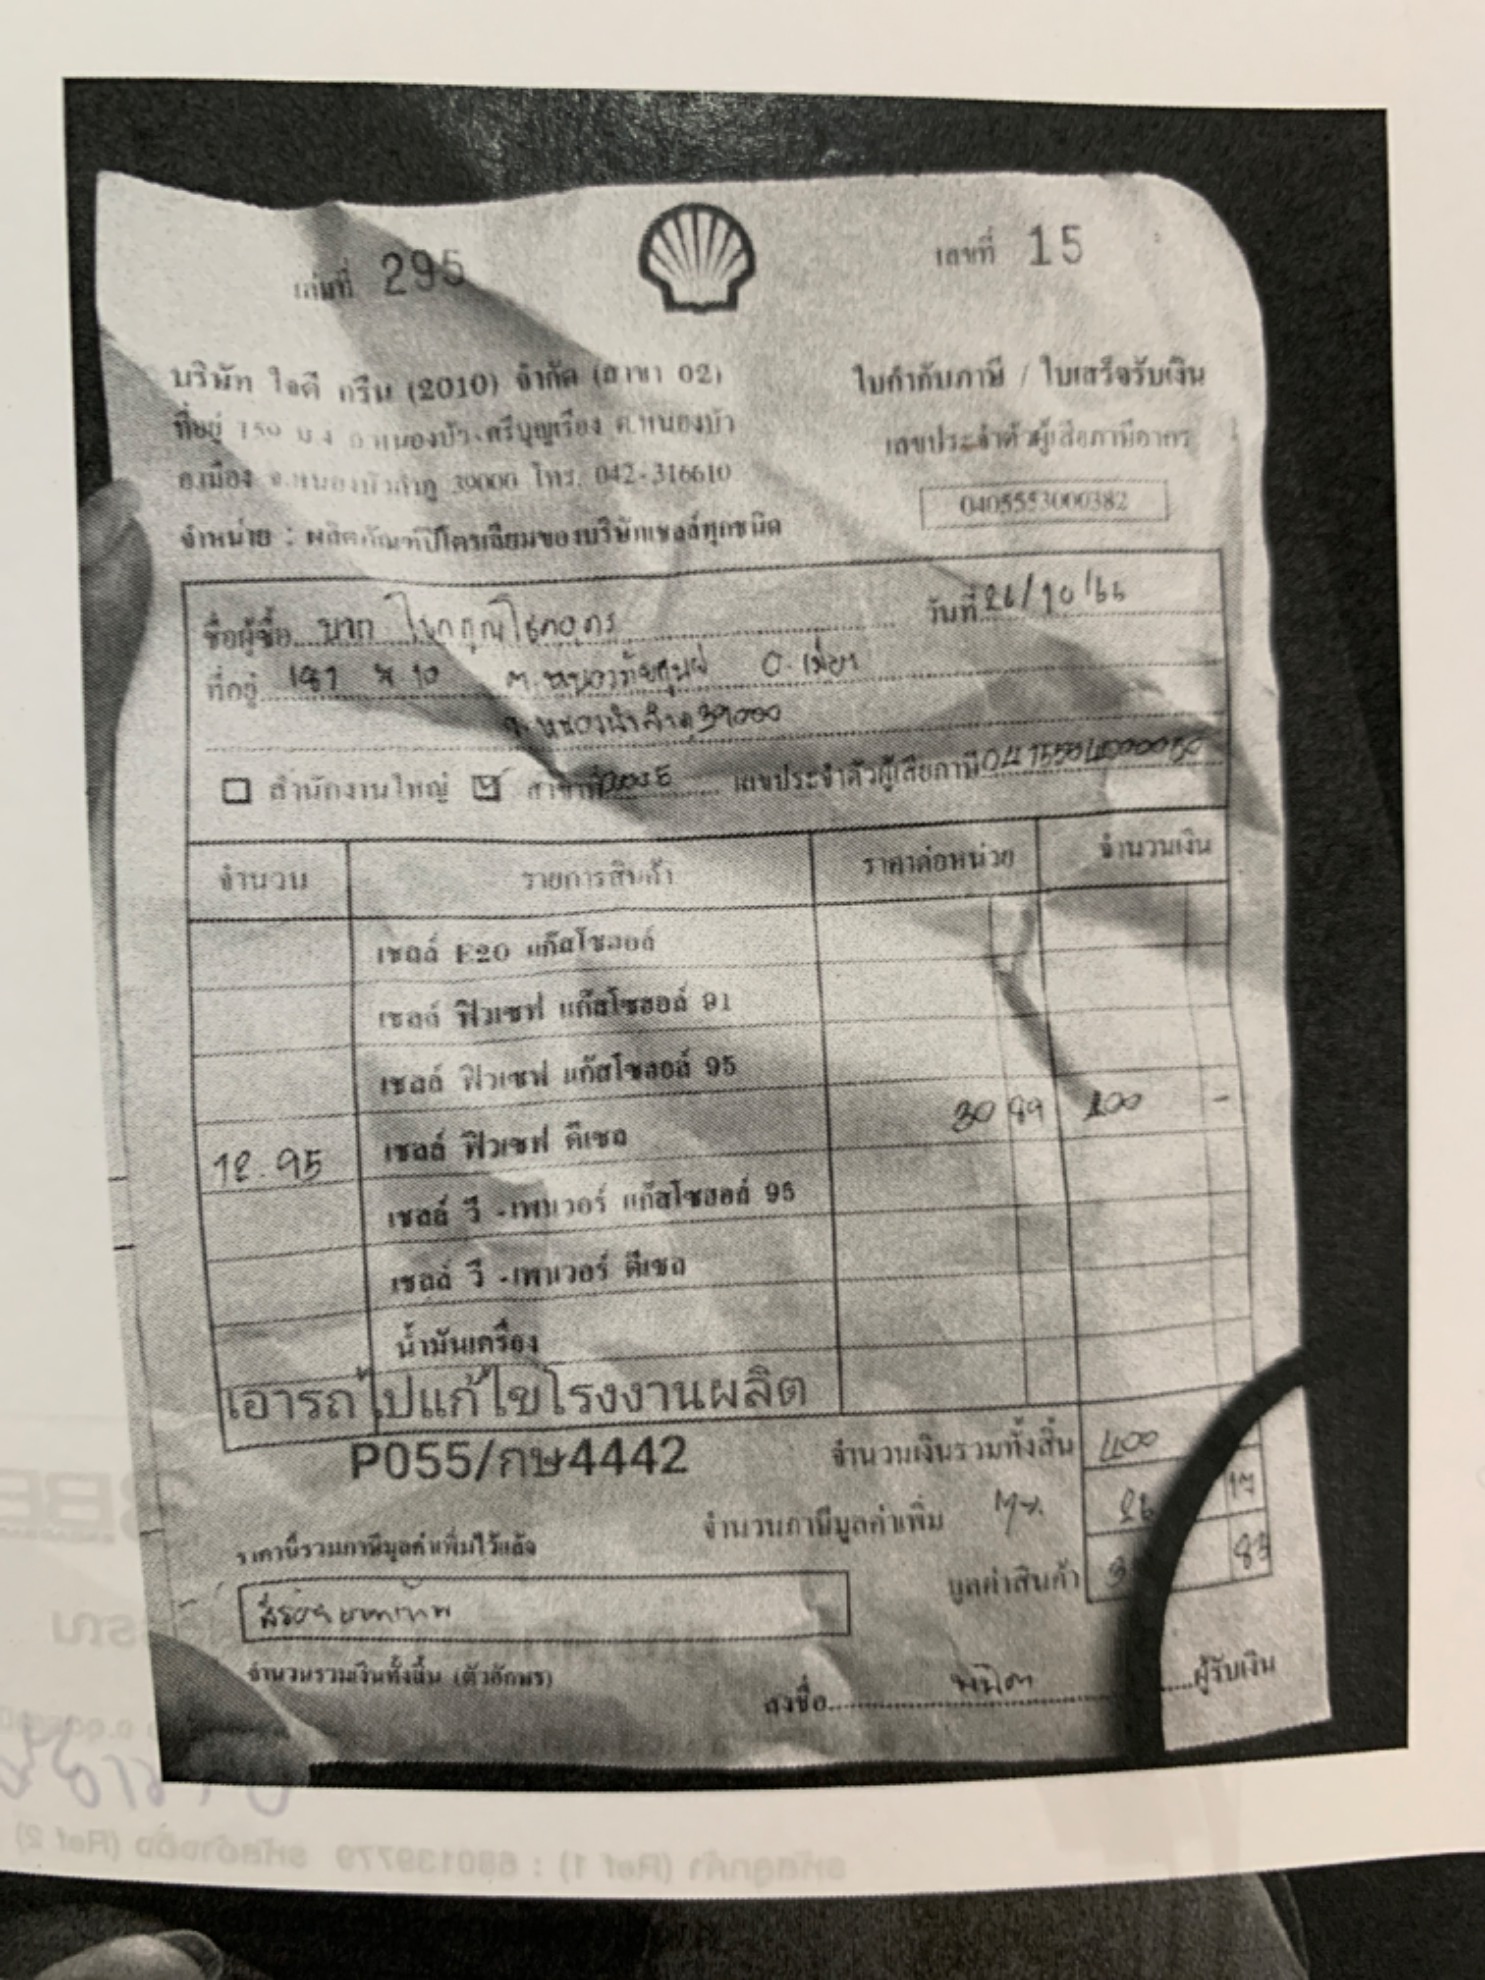 เล่มที่ 295
เลขที่ 15
บริษัท ใจดี กรีน (2010) จำกัด (สาขา 02)
ใบกำกับภาษี / ใบเสร็จรับเงิน
ที่อยู่ 159 ม.4 ถ.หนองบัว-ศรีบุญเรือง ต.หนองบัว
เลขประจำตัวผู้เสียภาษีอากร
อ.เมือง จ.หนองบัวลำภู 39000 โทร. 042-316610
0405553000382
จำหน่าย : ผลิตภัณฑ์ปิโตรเลียมของบริษัทเชลล์ทุกชนิด
ชื่อผู้ซื้อ
วันที่ 26/10/66
ที่อยู่ 187 ม 10 อ.เมือง
จ.หนองบัวลำภู 39000
สำนักงานใหญ่ สาขาที่ เลขประจำตัวผู้เสียภาษี
จำนวน รายการสินค้า ราคาต่อหน่วย จำนวนเงิน
เชลล์ E20 แก๊สโซฮอล์
เชลล์ ฟิวเซฟ แก๊สโซฮอล์ 91
เชลล์ ฟิวเซฟ แก๊สโซฮอล์ 95
12.95 เชลล์ ฟิวเซฟ ดีเซล 30 89 400 -
เชลล์ วี -เพาเวอร์ แก๊สโซฮอล์ 95
เชลล์ วี -เพาเวอร์ ดีเซล
น้ำมันเครื่อง
เอารถไปแก้ไขโรงงานผลิต
P055/กษ4442
จำนวนเงินรวมทั้งสิ้น 400
จำนวนภาษีมูลค่าเพิ่ม 7%. 26 17
ราคานี้รวมภาษีมูลค่าเพิ่มไว้แล้ว
มูลค่าสินค้า 83
สี่ร้อยบาทถ้วน
จำนวนรวมเงินทั้งสิ้น (ตัวอักษร)
ลงชื่อ ผู้รับเงิน
รหัสลูกค้า (Ref 1) : 680139779 รหัสอ้างอิง (Ref 2)